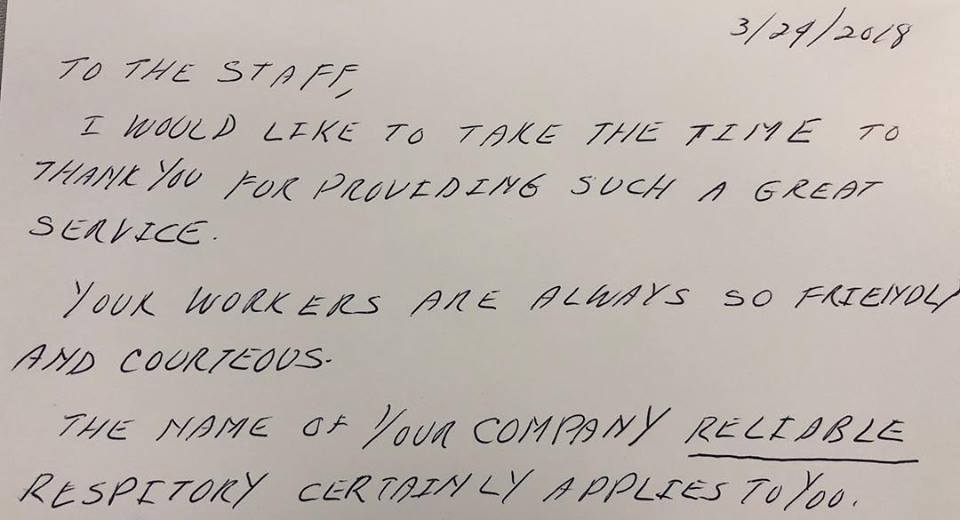 3/29/2018
TO THE STAFF,
I WOULD LIKE TO TAKE THE TIME TO
THANK YOU FOR PROVIDING SUCH A GREAT
SERVICE.
YOUR WORKERS ARE ALWAYS SO FRIENDLY
AND COURTEOUS.
THE NAME OF YOUR COMPANY RELIABLE
RESPITORY CERTAINLY APPLIES TO YOU.